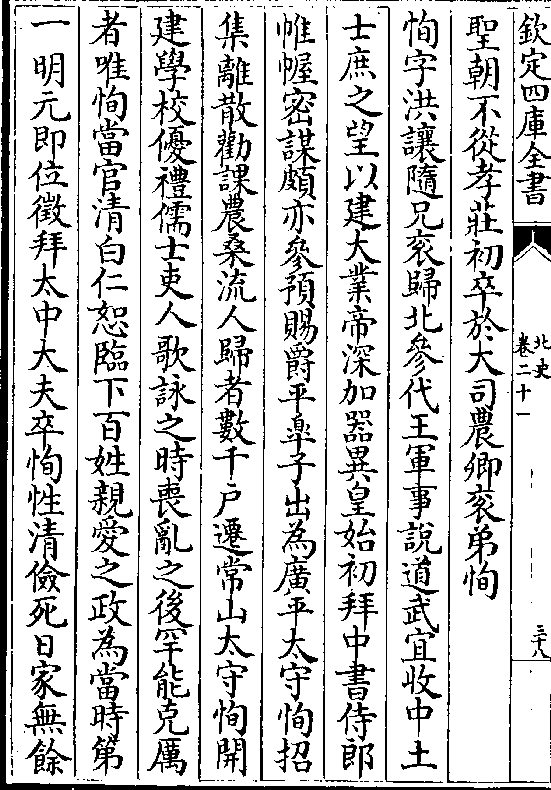 欽定四庫全書
北史
卷二十一
三十八
聖朝不從孝莊初卒於大司農卿衮弟恂
恂字洪讓隨兄衮歸北參代王軍事說道武宜收中土
士庶之望以建大業帝深加器異皇始初拜中書侍郎
帷幄密謀頗亦參預賜爵平臯子出為廣平太守恂招
集離散勸課農桑流人歸者數千戸遷常山太守恂開
建學校優禮儒士吏人歌詠之時喪亂之後罕能克厲
者唯恂當官清白仁恕臨下百姓親愛之政為當時第
一明元即位徵拜太中大夫卒恂性清儉死日家無餘